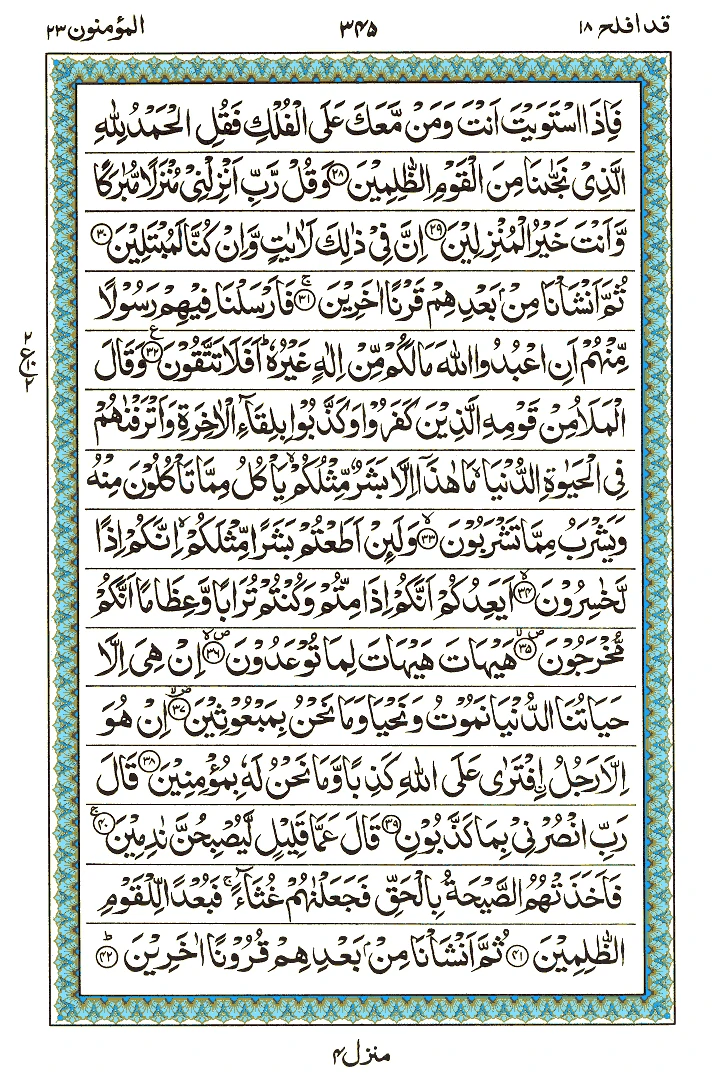 قد افلح ۱۸ ۳۴۵ المؤمنون ۲۳
فَاِذَا اسْتَوَيْتَ اَنْتَ وَمَنْ مَّعَكَ عَلَى الْفُلْكِ فَقُلِ الْحَمْدُ لِلّٰهِ
الَّذِىْ نَجّٰىنَا مِنَ الْقَوْمِ الظّٰلِمِيْنَ ۲۸ وَقُلْ رَّبِّ اَنْزِلْنِىْ مُنْزَلًا مُّبٰرَكًا
وَّاَنْتَ خَيْرُ الْمُنْزِلِيْنَ ۲۹ اِنَّ فِىْ ذٰلِكَ لَاٰيٰتٍ وَّاِنْ كُنَّا لَمُبْتَلِيْنَ ۳۰
ثُمَّ اَنْشَاْنَا مِنْۢ بَعْدِهِمْ قَرْنًا اٰخَرِيْنَ ۚ ۳۱ فَاَرْسَلْنَا فِيْهِمْ رَسُوْلًا
مِّنْهُمْ اَنِ اعْبُدُوا اللّٰهَ مَا لَكُمْ مِّنْ اِلٰهٍ غَيْرُهٗ ؕ اَفَلَا تَتَّقُوْنَ ۳۲ ع وَقَالَ
الْمَلَاُ مِنْ قَوْمِهِ الَّذِيْنَ كَفَرُوْا وَكَذَّبُوْا بِلِقَآءِ الْاٰخِرَةِ وَاَتْرَفْنٰهُمْ
فِى الْحَيٰوةِ الدُّنْيَا ۙ مَا هٰذَاۤ اِلَّا بَشَرٌ مِّثْلُكُمْ ۙ يَاْكُلُ مِمَّا تَاْكُلُوْنَ مِنْهُ
وَيَشْرَبُ مِمَّا تَشْرَبُوْنَ ۙ ۳۳ وَلَئِنْ اَطَعْتُمْ بَشَرًا مِّثْلَكُمْ ۙ اِنَّكُمْ اِذًا
لَّخٰسِرُوْنَ ۙ ۳۴ اَيَعِدُكُمْ اَنَّكُمْ اِذَا مِتُّمْ وَكُنْتُمْ تُرَابًا وَّعِظَامًا اَنَّكُمْ
مُّخْرَجُوْنَ ۙ ۳۵ هَيْهَاتَ هَيْهَاتَ لِمَا تُوْعَدُوْنَ ۙ ۳۶ اِنْ هِىَ اِلَّا
حَيَاتُنَا الدُّنْيَا نَمُوْتُ وَنَحْيَا وَمَا نَحْنُ بِمَبْعُوْثِيْنَ ۙ ۳۷ اِنْ هُوَ
اِلَّا رَجُلُ ۨافْتَرٰى عَلَى اللّٰهِ كَذِبًا وَّمَا نَحْنُ لَهٗ بِمُؤْمِنِيْنَ ۳۸ قَالَ
رَبِّ انْصُرْنِىْ بِمَا كَذَّبُوْنِ ۳۹ قَالَ عَمَّا قَلِيْلٍ لَّيُصْبِحُنَّ نٰدِمِيْنَ ۚ ۴۰
فَاَخَذَتْهُمُ الصَّيْحَةُ بِالْحَقِّ فَجَعَلْنٰهُمْ غُثَآءً ۚ فَبُعْدًا لِّلْقَوْمِ
الظّٰلِمِيْنَ ۴۱ ثُمَّ اَنْشَاْنَا مِنْۢ بَعْدِهِمْ قُرُوْنًا اٰخَرِيْنَ ؕ ۴۲
۲
ع۱۰
۲
منزل ۴